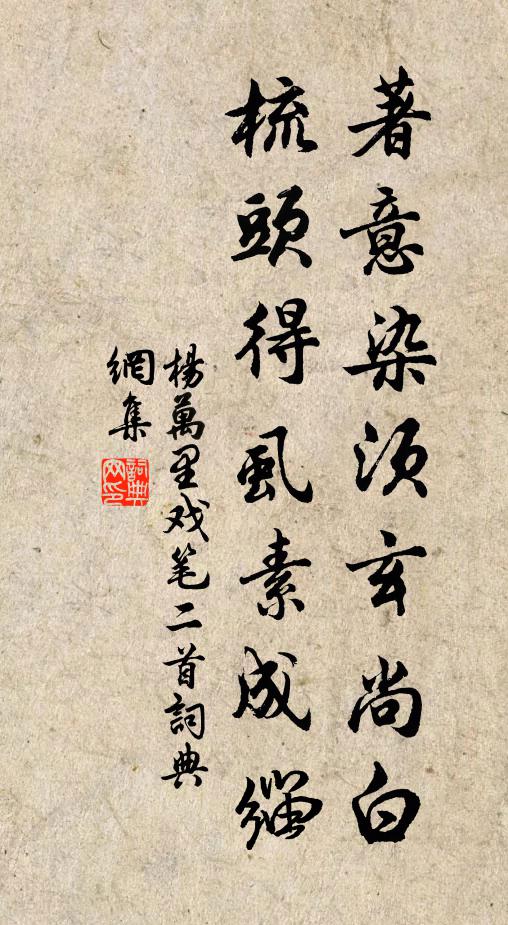 著意染须玄尚白
梳頭得虱素成緇
楊萬里戏笔二首詞典
網集
詞典
网印